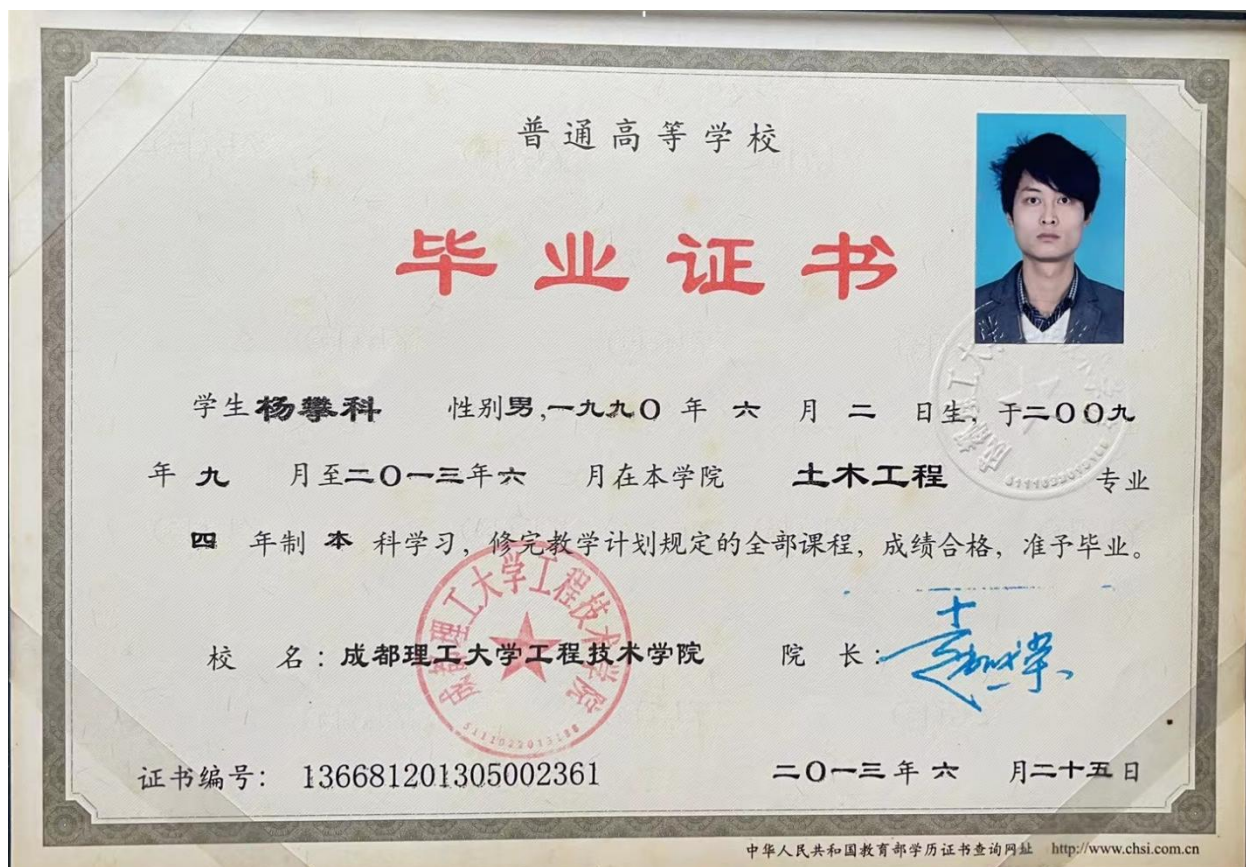 普通高等学校
毕业证书
学生杨攀科 性别男,一九九〇年 六 月 二 日生, 于二〇〇九
年 九 月至二〇一三年六 月在本学院 土木工程 专业
四 年制 本 科学习, 修完教学计划规定的全部课程, 成绩合格, 准予毕业。
成都理工大学工程技术学院
校 名: 成都理工大学工程技术学院 院 长:
证书编号: 136681201305002361 二〇一三年 六 月二十五日
中华人民共和国教育部学历证书查询网址 http://www.chsi.com.cn